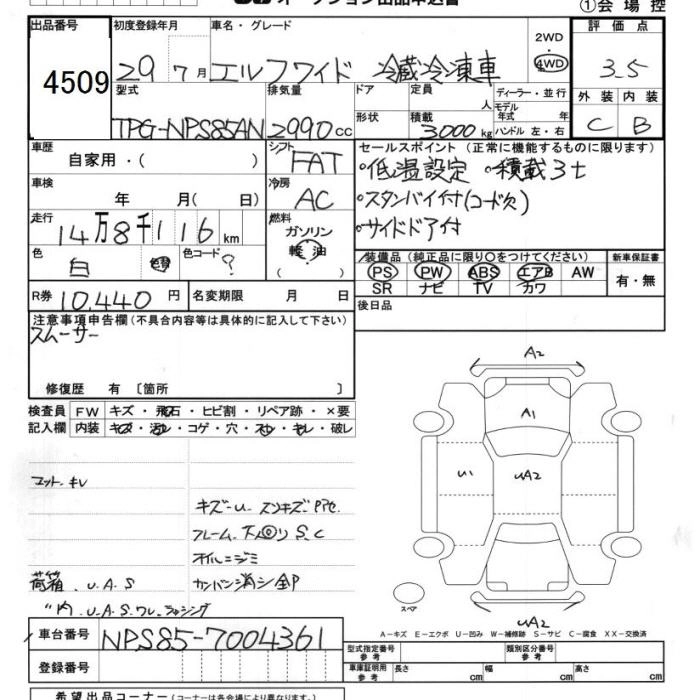 オークション出品申込書
①会場控
出品番号
4509
初度登録年月
29 7月
車名・グレード
エルフワイド 冷蔵冷凍車
2WD
・
4WD
評価点
3.5
外装 内装
C B
型式
TPG-NPS85AN
排気量
2990cc
ドア
形状
定員
人
積載
3000kg
ディーラー・並行
モデル
年式 年
ハンドル 左・右
車歴
自家用・( )
シフト
FAT
車検
年 月( 日)
冷房
AC
走行
14万8千116km
燃料
ガソリン
軽油
( )
色
白
色替
色コード
?
R券
10,440円
名変期限 月 日
セールスポイント (正常に機能するものに限ります)
・低温設定 ・積載3t
・スタンバイ付(コード欠)
・サイドドア付
装備品 (純正品に限り○をつけてください)
新車保証書
PS PW ABS エアB AW
SR ナビ TV カワ
有・無
後日品
注意事項申告欄(不具合内容等は具体的に記入して下さい)
スムーサー
修復歴 有 〔箇所 〕
検査員
記入欄
FW キズ・飛石・ヒビ割・リペア跡・×要
内装 キズ・汚レ・コゲ・穴・スレ・キレ・破レ
キズ-U.
フレーム
S.C
オイルニジミ
荷箱.U.A.S
"内.U.A.S.ワレ.
A2
A1
U1
UA2
スペア
UA2
A-キズ E-エクボ U-凹み W-補修跡 S-サビ C-腐食 XX-交換済
車台番号
NPS85-7004361
登録番号
型式指定番号
参考
類別区分番号
参考
車庫証明用
参考
長さ cm
幅 cm
高さ cm
希望出品コーナー(コーナーは各会場により異なります)